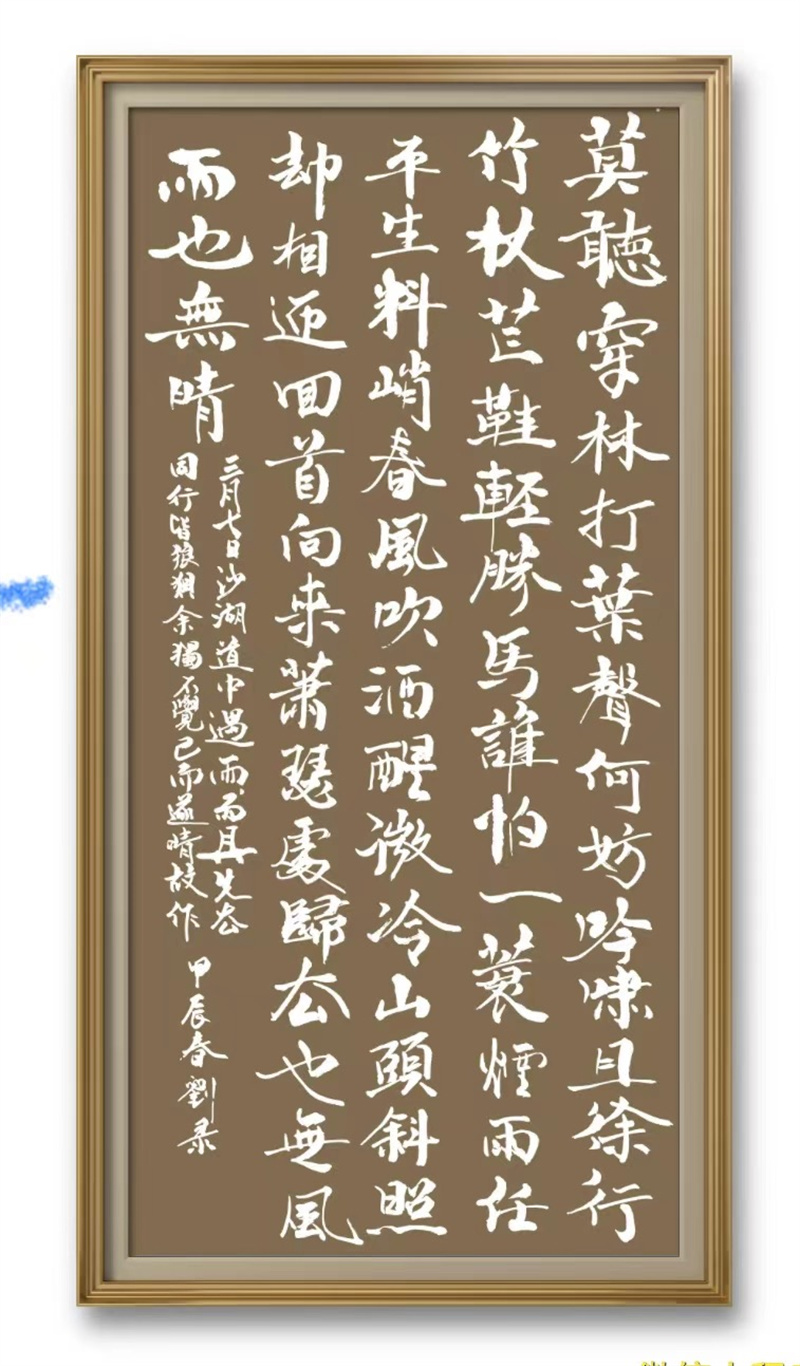 莫聽穿林打葉聲何妨吟嘯且徐行
竹杖芒鞋輕勝馬誰怕一蓑煙雨任
平生料峭春風吹酒醒微冷山頭斜照
却相迎回首向来蕭瑟處歸去也無風
雨也無晴
三月七日沙湖道中遇雨雨具先去
同行皆狼狽余獨不覺已而遂晴故作
甲辰春劉录